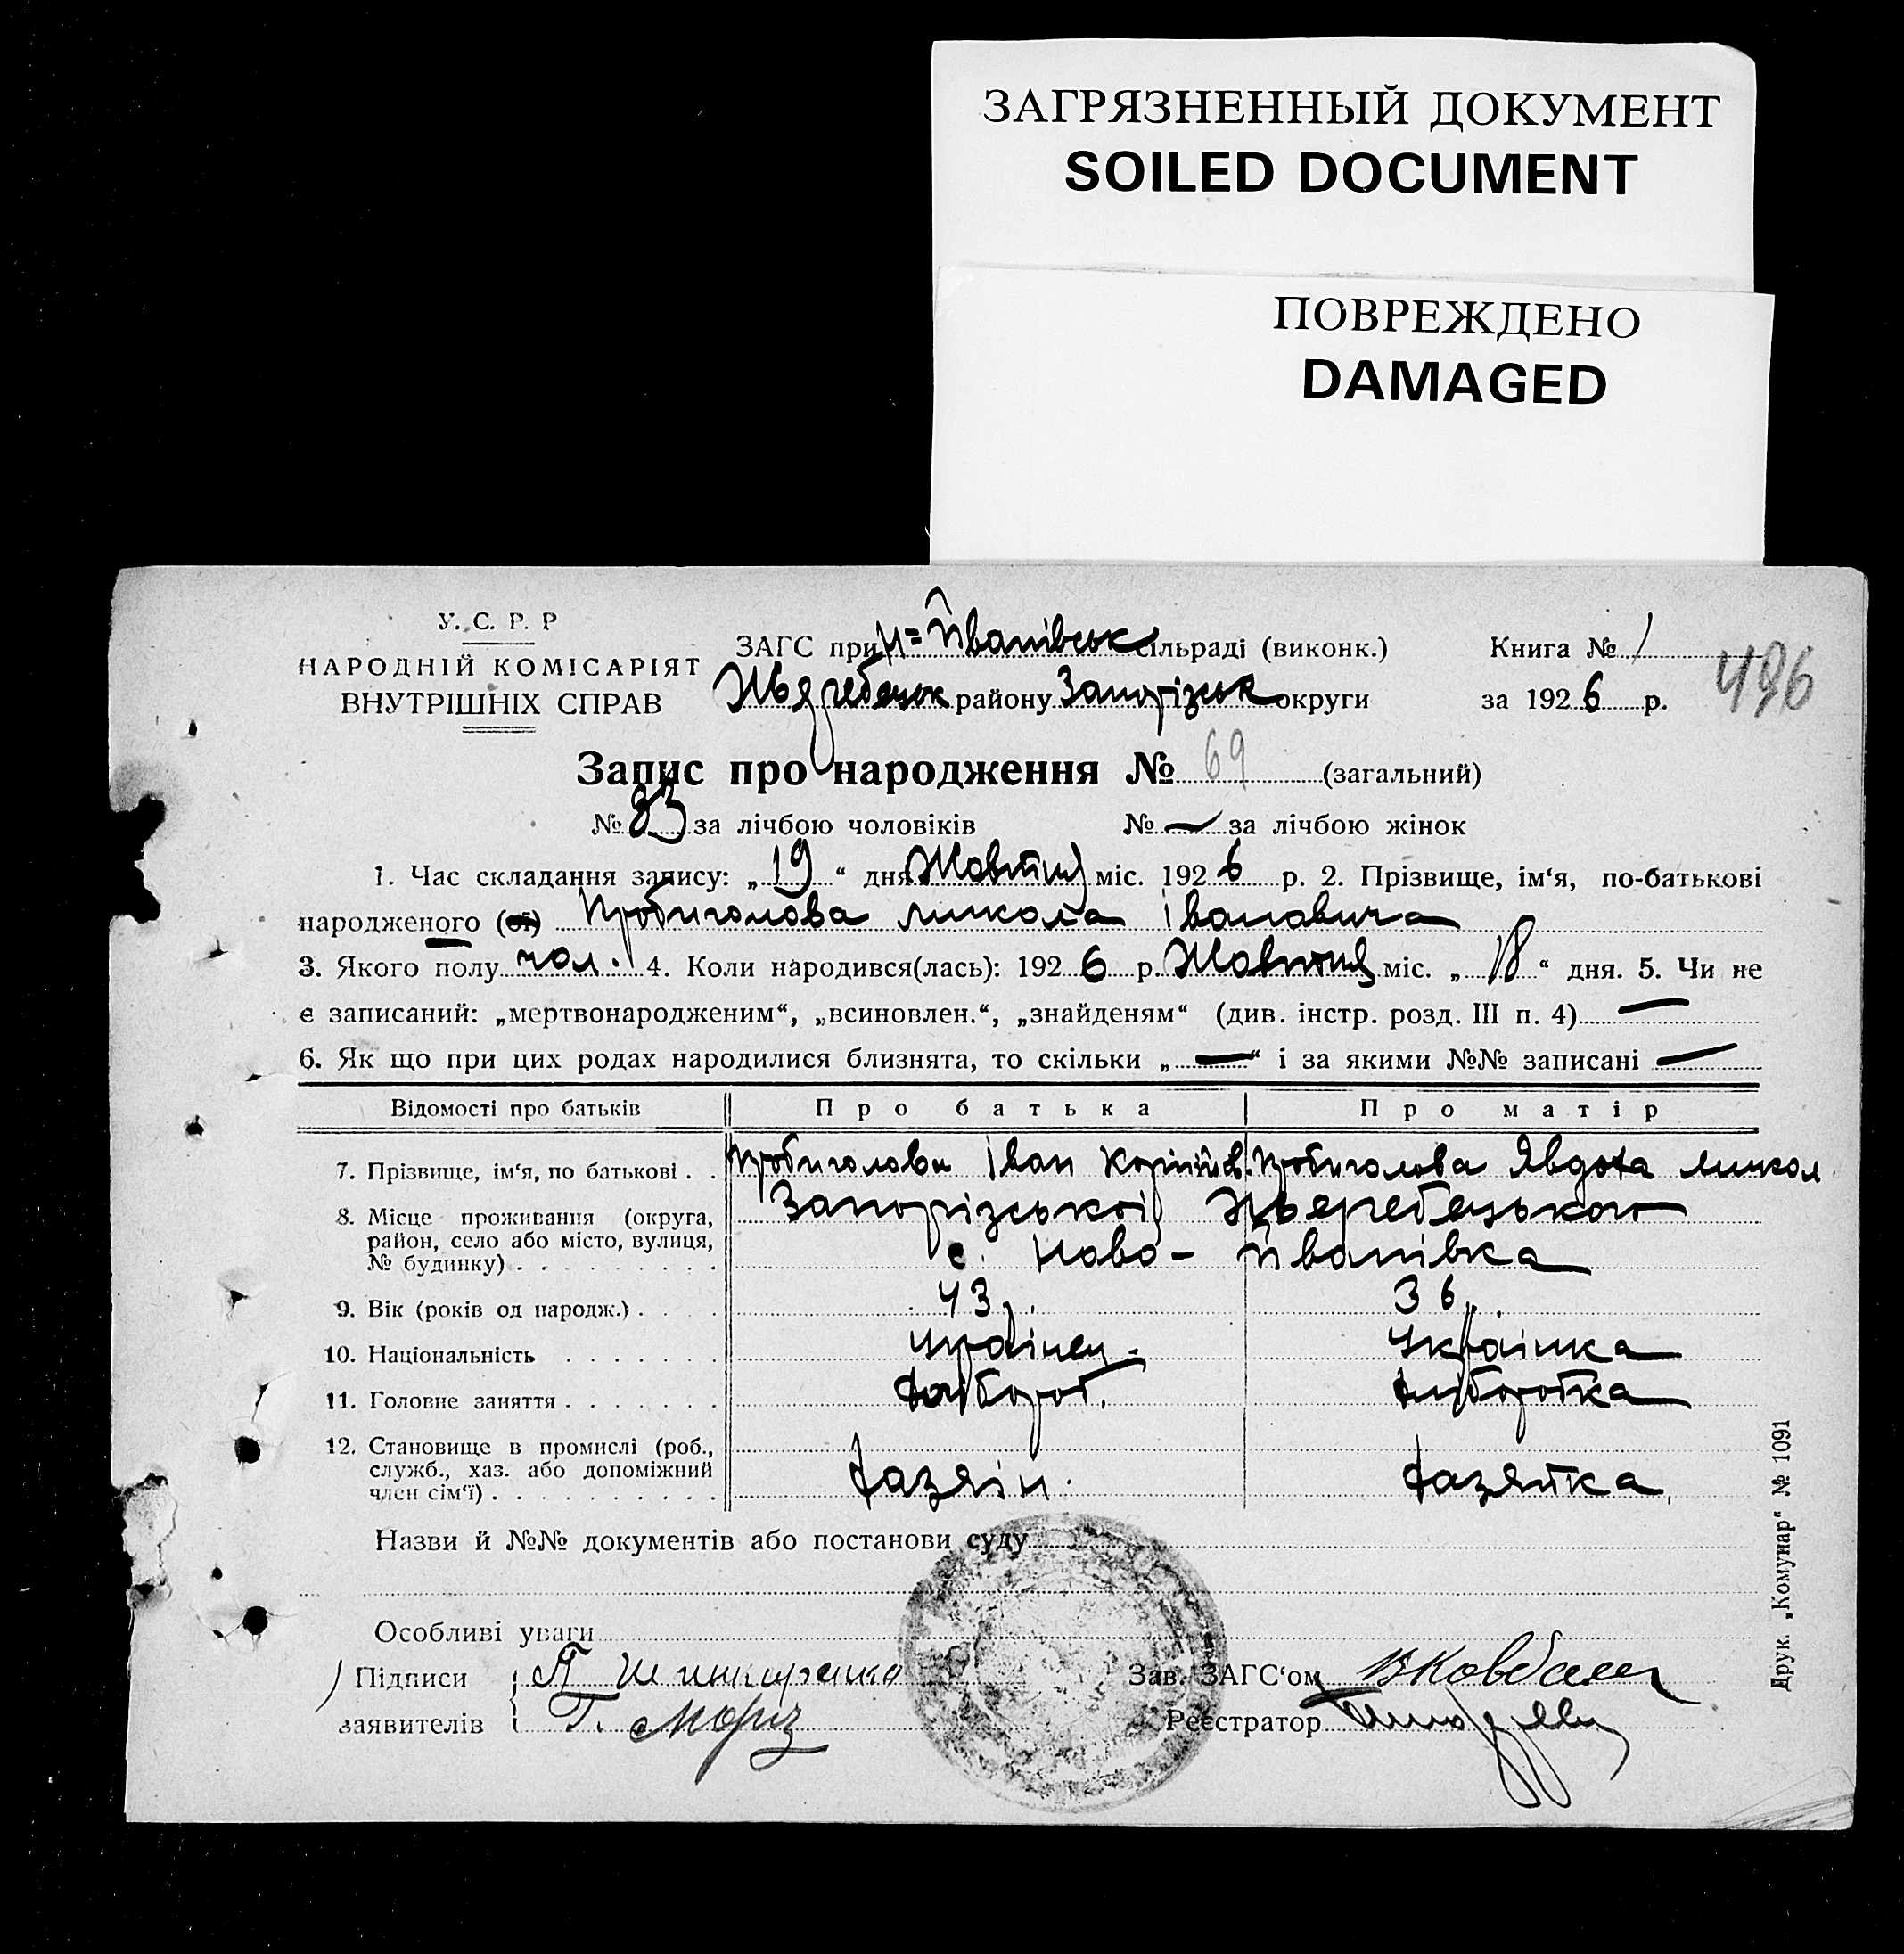 ЗАГРЯЗНЕННЫЙ ДОКУМЕНТ
SOILED DOCUMENT
ПОВРЕЖДЕНО
DAMAGED
У. С. Р. Р
НАРОДНІЙ КОМІСАРІЯТ
ВНУТРІШНІХ СПРАВ
ЗАГС при Н=Йванівськ сільраді (виконк.)
районy Запорізьк округи
Книга № 1
за 1926 р.
496
Запис про народження № 69 (загальний)
№ 33 за лічбою чоловіків № — за лічбою жінок
1. Час складання запису: „19“ дня Жовтня міс. 1926 р. 2. Прізвище, ім‘я, по-батькові
народженого (ої) Пробиголова Микола Івановича
3. Якого полу чол. 4. Коли народився(лась): 1926 р. Жовтня міс. „18“ дня. 5. Чи не
є записаний: „мертвонародженим“, „всиновлен.“, „знайденям“ (див. інстр. розд. III п. 4) —
6. Як що при цих родах народилися близнята, то скільки „—“ і за якими №№ записані —
Відомості про батьків Про батька Про матір
7. Прізвище, ім‘я, по батькові . . Пробиголова Іван Пробиголова Явдоха Микол
8. Місце проживання (округа,
район, село або місто, вулиця,
№ будинку) . . . . . . . . .
Запорізької
с. Ново-Йванівка
9. Вік (років од народж.) . . . 43 р. 36 р.
10. Національність . . . . . . . українец. Українка
11. Головне заняття . . . . . . . хлібороб. хліборобка
12. Становище в промислі (роб.,
служб., хаз. або допоміжний
член сім‘ї) . . . . . . . . . .
хазяін. хазяйка
Назви й №№ документів або постанови суду
Особливі уваги
Підписи
заявителів
Т. Мороз
Зав. ЗАГС‘ом
Реєстратор
Друк. „Комунар“ № 1091